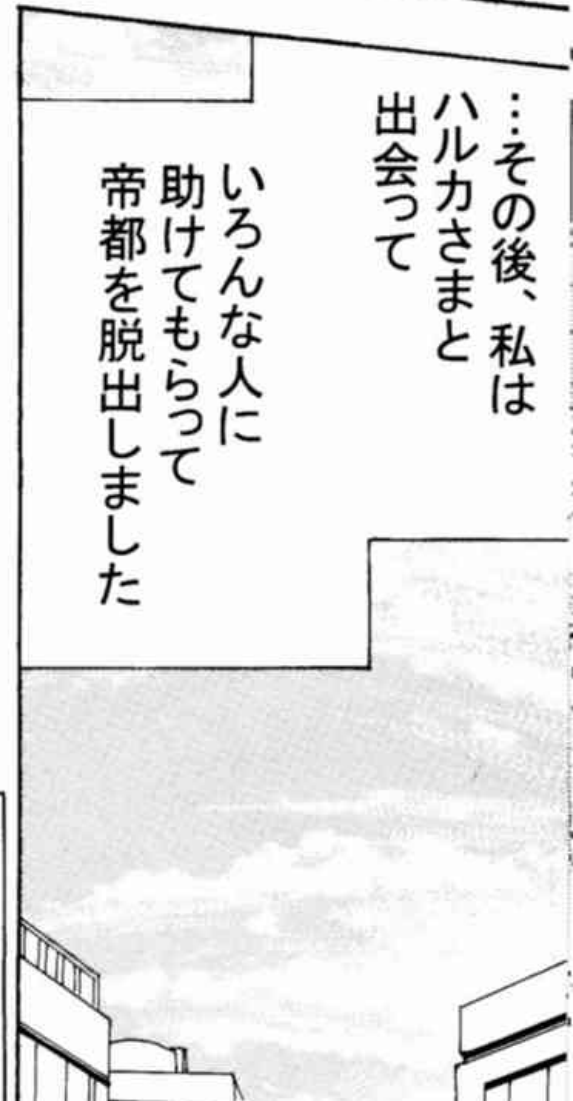 …その後、私は
ハルカさまと
出会って
いろんな人に
助けてもらって
帝都を脱出しました